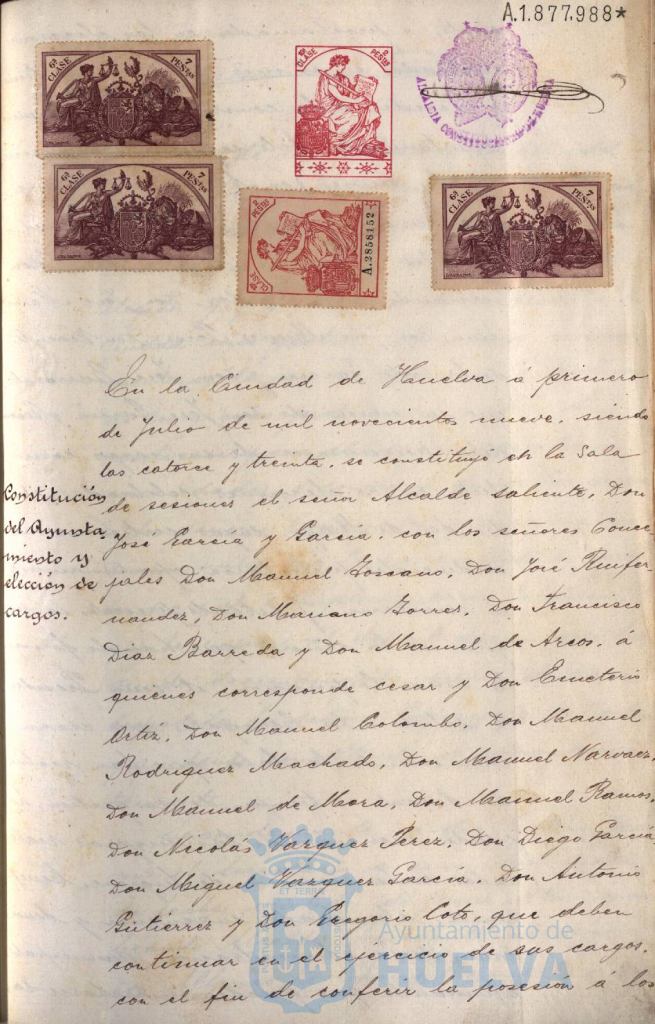 A.1.877.988*
6ª CLASE
7 PESTAS
1ª CLASE
2 PESTAS
ALCALDIA CONSTITUCIONAL DE HUELVA
6ª CLASE
7 PESTAS
CLASE
2 PESTAS
A.2858152
6ª CLASE
7 PESTAS
En la Ciudad de Huelva á primero
de Julio de mil novecientos nueve, siendo
las catorce y treinta, se constituyó en la Sala
de sesiones el señor Alcalde saliente, Don
José García y García, con los señores Conce-
jales Don Manuel Toscano, Don José Ruifer-
nandez, Don Mariano Torres, Don Francisco
Diaz Barreda y Don Manuel de Arcos, á
quienes corresponde cesar y Don Emeterio
Ortíz, Don Manuel Colombo, Don Manuel
Rodriguez Machado, Don Manuel Narvaez,
Don Manuel de Mora, Don Manuel Ramos,
Don Nicolás Vazquez Perez, Don Diego García
Don Miguel Vazquez García, Don Antonio
Gutiérrez y Don Gregorio Coto, que deben
continuar en el ejercicio de sus cargos,
con el fin de conferir la posesión á los
Constitución
del Ayunta-
miento y
elección de
cargos.
Ayuntamiento de
HUELVA